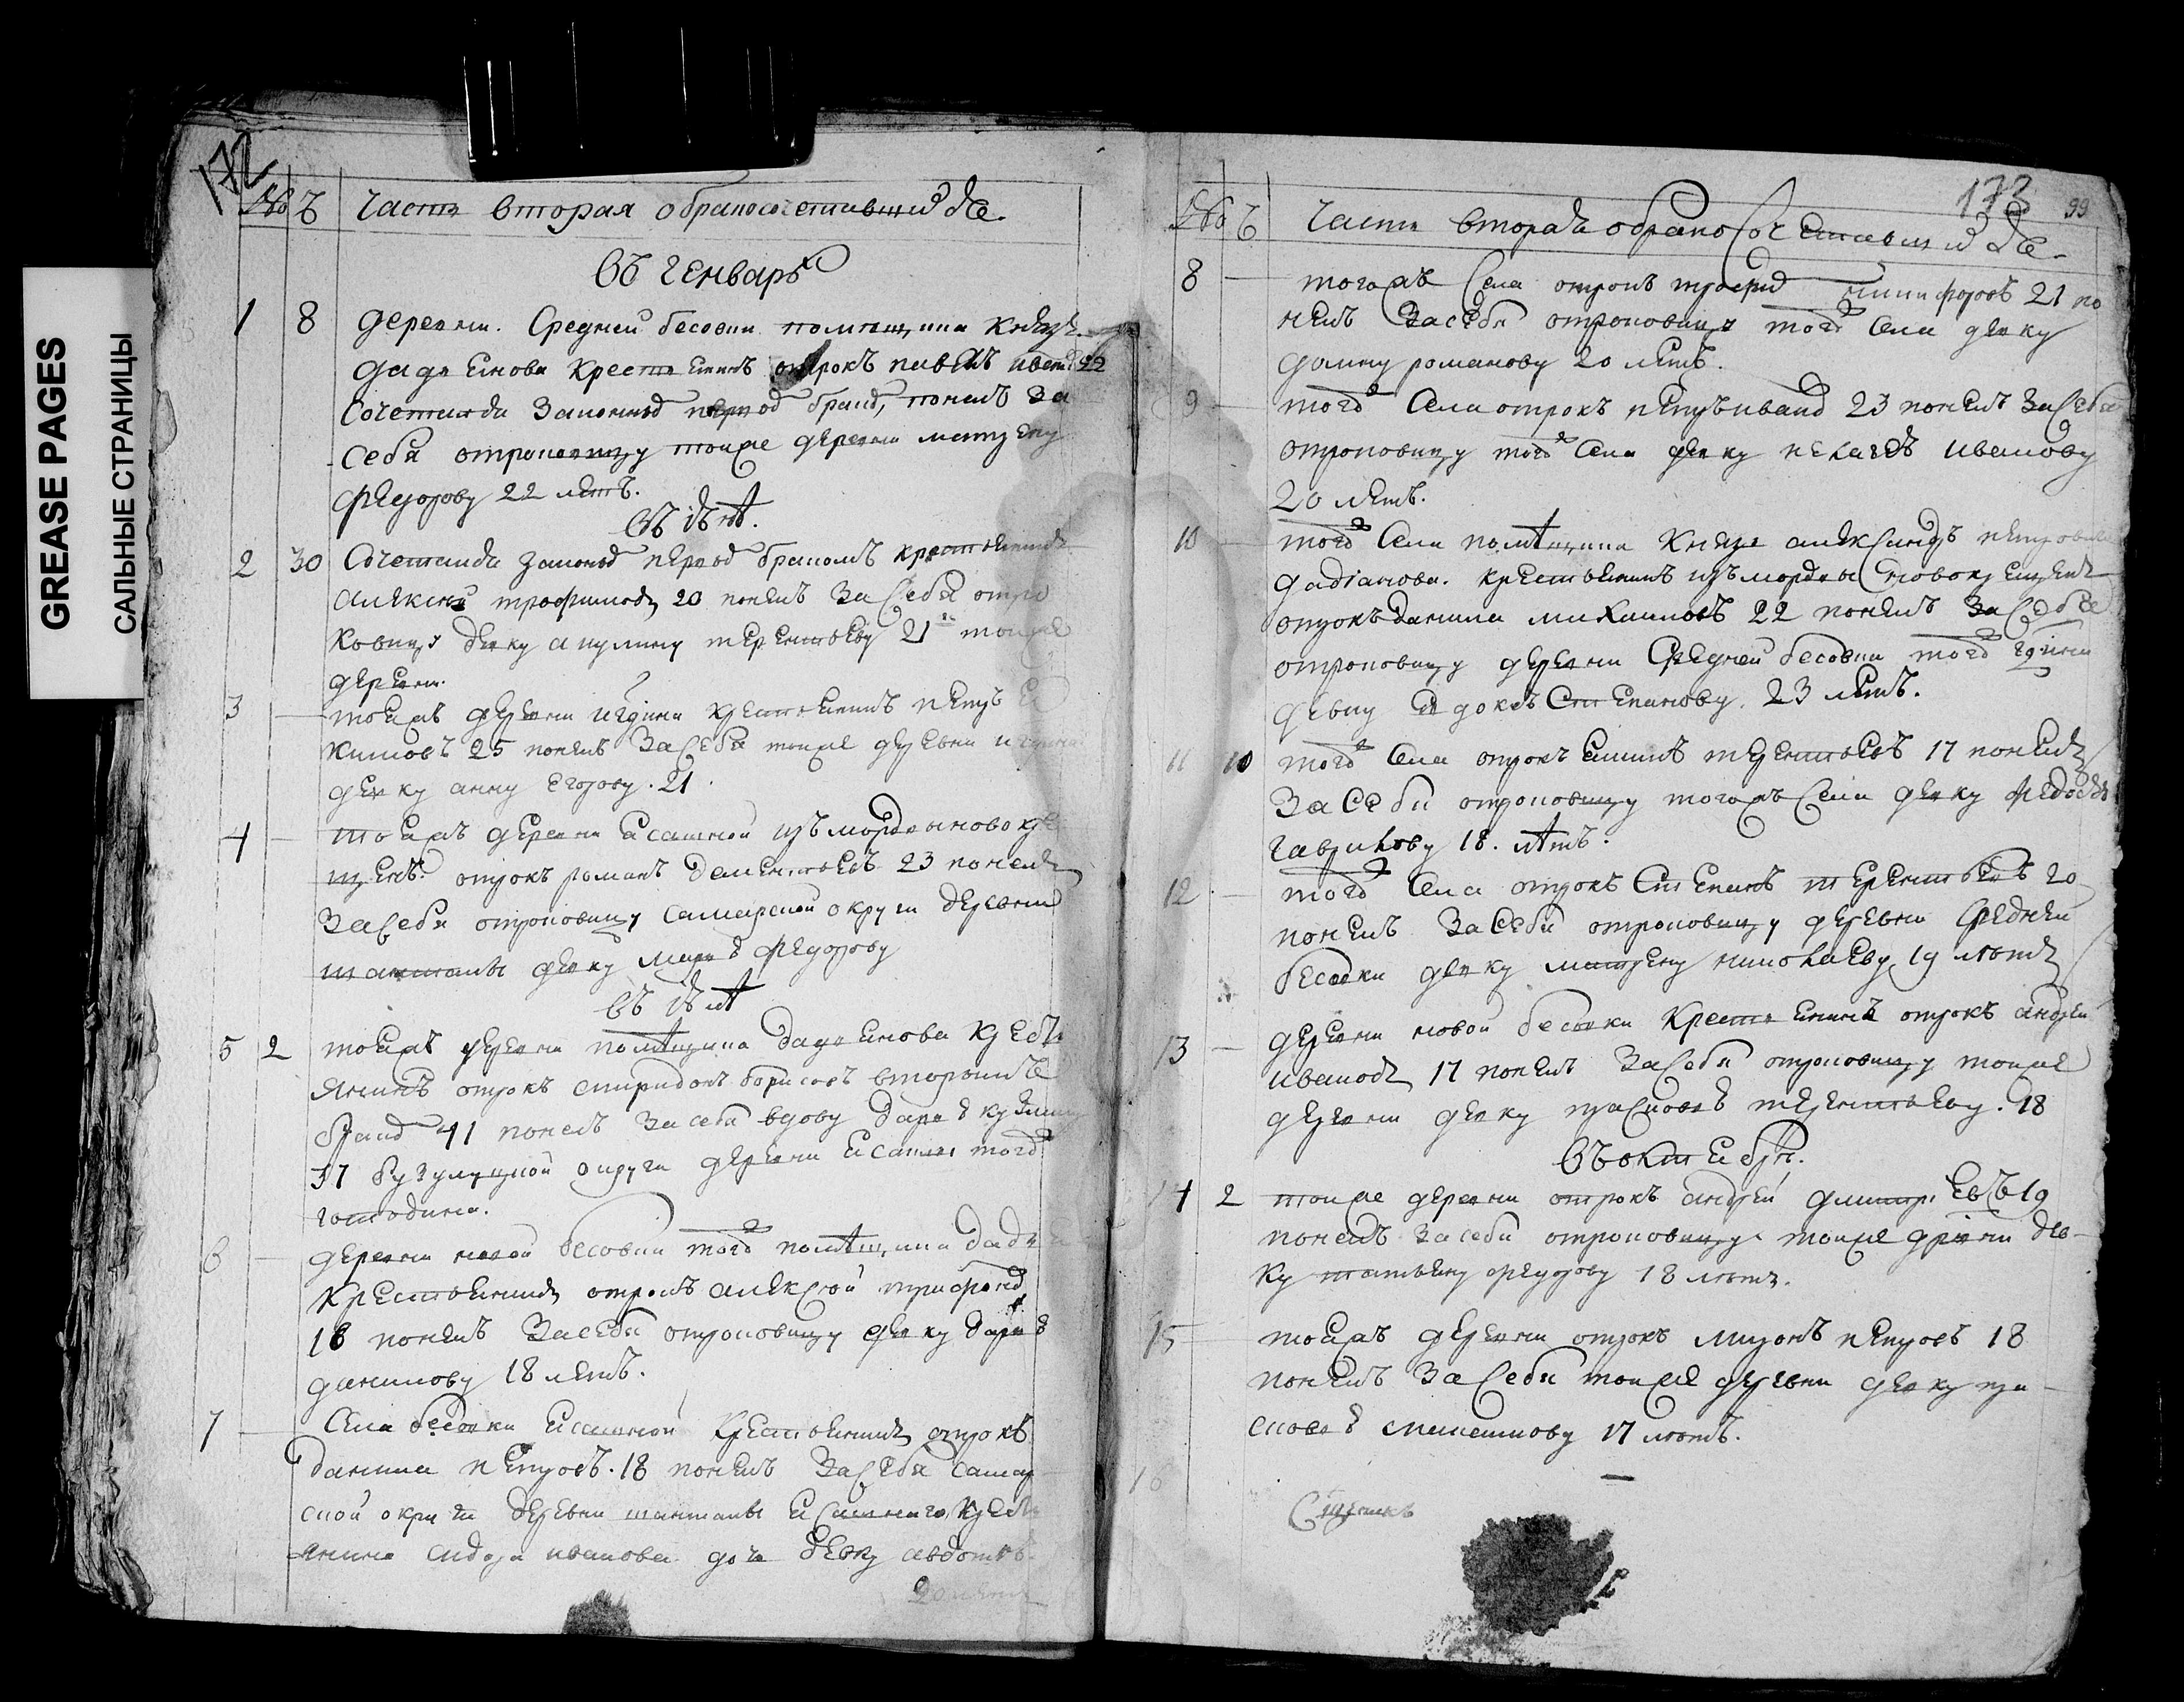 GREASE PAGES
САЛЬНЫЕ СТРАНИЦЫ
172
№ Ъ часть вторая о бракосочетавшихся.
Въ генварѣ
1 8 деревни. Средней бесовки помещика князя
дадеянова крестьянинъ отрокъ павелъ иванов 22
Сочетался законным первым браком, понелъ за
себя отроковицу тоиже деревни матрену
федорову 22 летъ.
2 30 Сочетался законым первым бракомъ крестьянинъ
алексей трофимовъ 20 понелъ за себя отро
ковицу девку акулину терентьеву 21 тоиже
деревни.
3 тоежъ деревни крестьянинъ петръ
кимовъ 25 понелъ за себя тоиже деревни
девку анну егорову. 21.
4 тоежъ деревни ясашной изъ мордвы новокре
щенъ. отрокъ романъ дементьевъ 23 понелъ
за себя отроковицу самарской округи деревни
девку марью федорову
5 2 тоежъ деревни помѣщика дадеянова кресть
янинъ отрокъ спиридонъ борисовъ вторымъ
браком 41 понелъ за себя вдову дарью
37 бузулуцкой округи деревни того
господина.
6 деревни новой бесовки того помѣщика
крестьянинъ отрокъ алексей трифонов
18 понелъ за себя отроковицу девку дарью
данилову 18 летъ.
7 Села бесовки ясашной крестьянинъ отрокъ
данила петровъ. 18 понелъ за себя самар
ской округи деревни ясашнаго кресть
янина сидора иванова дочь девку авдотью.
20 летъ
173 99
№ Ъ часть вторая о бракосочетавшихся.
8 тогожъ села отрокъ никифоровъ 21 по
нелъ за себя отроковицу того села девку
домну романову 20 летъ.
9 того села отрокъ петръ иванов 23 понелъ за себя
отроковицу того села девку пелагею иванову
20 летъ.
10 того села помѣщика князя александръ петровича
дадианова. крестьянинъ изъ мордвы новокрещенъ
отрокъ данила михаиловъ 22 понелъ за себя
отроковицу деревни средней бесовки того
девку степанову. 23 летъ.
11 10 того села отрокъ терентьевъ 17 понелъ
за себя отроковицу тогожъ села девку федосью
гаврилову 18. лѣтъ.
12 того села отрокъ степанъ терентьевъ 20
понелъ за себя отроковицу деревни средней
бесовки девку матрену николаеву 19 летъ
13 деревни новой бесовки крестьянинъ отрокъ андрей
ивановъ 17 понелъ за себя отроковицу тоиже
деревни девку прасковью терентьеву. 18
Въ октебрѣ.
14 2 тоиже деревни отрокъ андрей дмитриевъ 19
понелъ за себя отроковицу тоиже деревни дев
ку татьяну федорову 18 летъ.
15 тоежъ деревни отрокъ миронъ петровъ 18
понелъ за себя тоиже деревни девку пра
сковью 17 летъ.
16